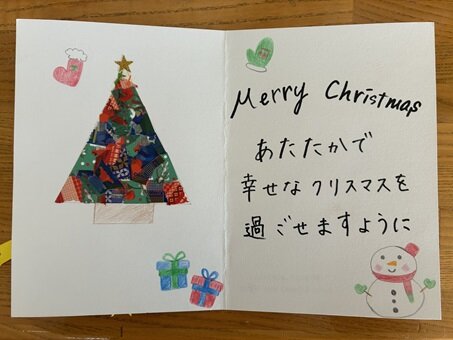 Merry Christmas
あたたかで
幸せなクリスマスを
過ごせますように